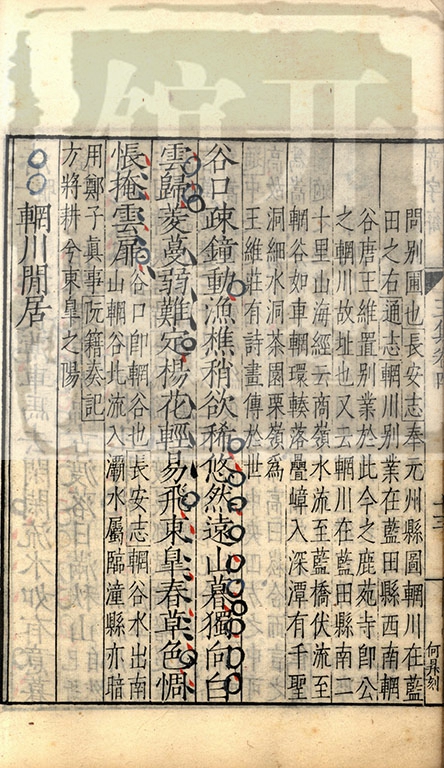 問別圃也長安志奉元州縣圖輞川在藍
田之右通志輞川別業在藍田縣西南輞
谷唐王維置別業於此今之鹿苑寺卽公
之輞川故址也又云輞川在藍田縣南二
十里山海經云商嶺水流至藍橋伏流至
輞谷如車輞環輳落疊嶂入深潭有千聖
洞細水洞茶園栗嶺為
王維莊有詩畫傳於世
谷口疎鐘動漁樵稍欲稀悠然遠山暮獨向白
雲歸菱蔓弱難定楊花輕易飛東臯春草色惆
悵掩雲扉
谷口卽輞谷也長安志輞谷水出南
山輞谷北流入灞水屬臨潼縣亦暗
用鄭子真事阮籍奏記
方將耕兮東皐之陽
輞川閒居